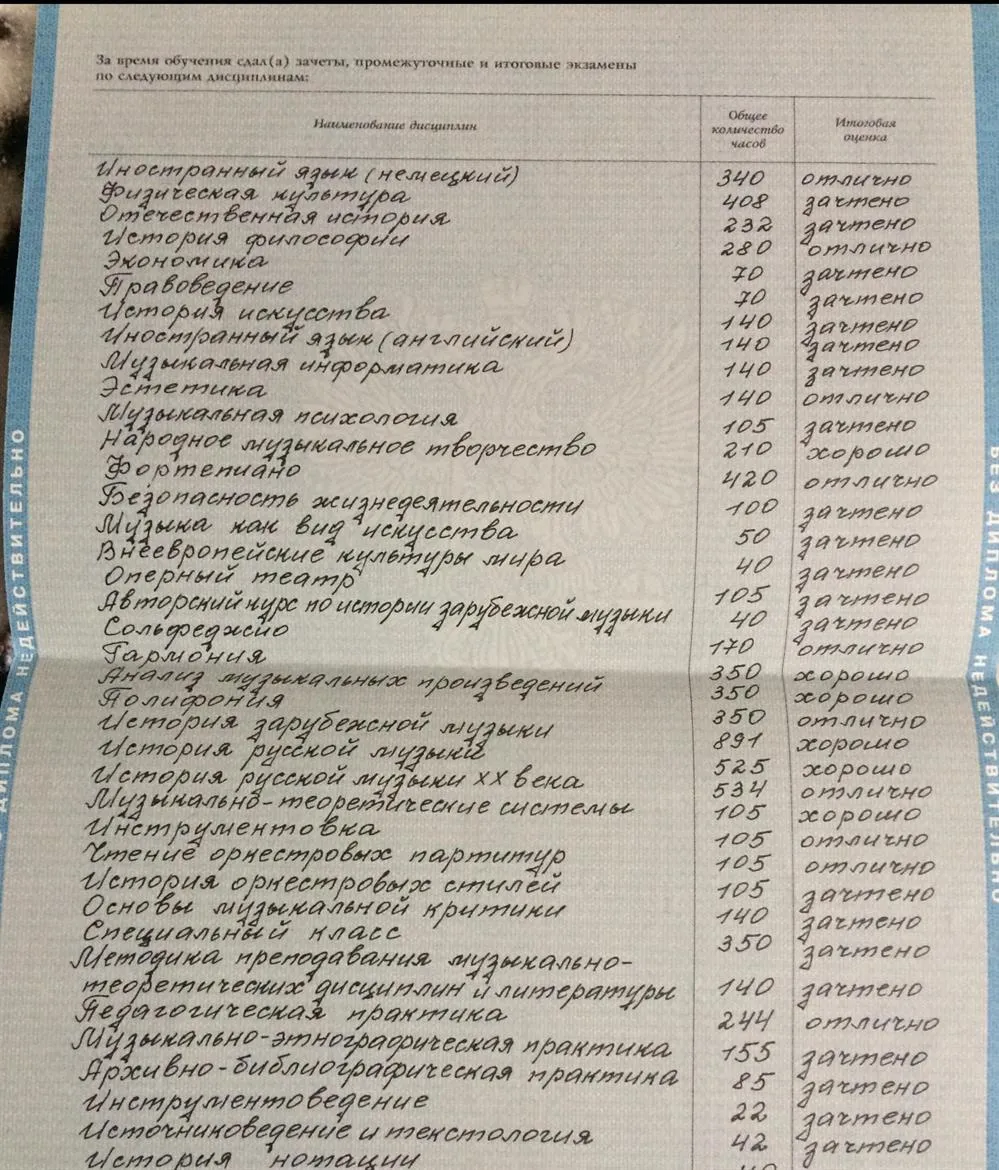 За время обучения сдал(а) зачеты, промежуточные и итоговые экзамены
по следующим дисциплинам:
Наименование дисциплин Общее количество часов Итоговая оценка
Иностранный язык (немецкий) 340 отлично
Физическая культура 408 зачтено
Отечественная история 232 зачтено
История философии 280 отлично
Экономика 70 зачтено
Правоведение 70 зачтено
История искусства 140 зачтено
Иностранный язык (английский) 140 зачтено
Музыкальная информатика 140 зачтено
Эстетика 140 отлично
Музыкальная психология 105 зачтено
Народное музыкальное творчество 210 хорошо
Фортепиано 420 отлично
Безопасность жизнедеятельности 100 зачтено
Музыка как вид искусства 50 зачтено
Внеевропейские культуры мира 40 зачтено
Оперный театр 105 зачтено
Авторский курс по истории зарубежной музыки 40 зачтено
Сольфеджио 170 отлично
Гармония 350 хорошо
Анализ музыкальных произведений 350 хорошо
Полифония 350 отлично
История зарубежной музыки 891 хорошо
История русской музыки 525 хорошо
История русской музыки XX века 534 отлично
Музыкально-теоретические системы 105 хорошо
Инструментовка 105 отлично
Чтение оркестровых партитур 105 отлично
История оркестровых стилей 105 зачтено
Основы музыкальной критики 140 зачтено
Специальный класс 350 зачтено
Методика преподавания музыкально-
теоретических дисциплин и литературы 140 зачтено
Педагогическая практика 244 отлично
Музыкально-этнографическая практика 155 зачтено
Архивно-библиографическая практика 85 зачтено
Инструментоведение 22 зачтено
Источниковедение и текстология 42 зачтено
История нотации
ДИПЛОМА НЕДЕЙСТВИТЕЛЬНО
БЕЗ ДИПЛОМА НЕДЕЙСТВИТЕЛЬНО